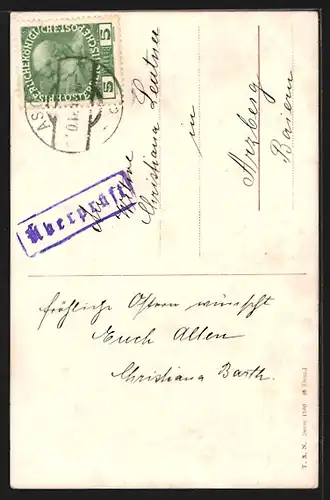 KAISERLICHE KÖNIGLICHE ÖSTERREICHISCHE POST
5 5
AS
Überprüft
An
Christiana Leutner
in
Arzberg
Baiern
fröhliche Ostern wünscht
Euch Allen
Christiana Barth.
T. S. N. Serie